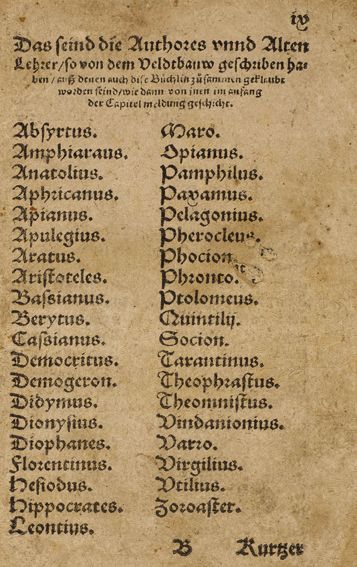 ix
Das seind die Authores vnnd Alten
Lehrer/so von dem Veldtbauw geschriben ha-
ben/auß denen auch dise Büchlin zůsammen geklaubt
worden seind/wie dann von jnen im anfang
der Capitel meldung geschicht.
Absyrtus.
Amphiaraus.
Anatolius.
Aphricanus.
Apianus.
Apulegius.
Aratus.
Aristoteles.
Bassianus.
Berytus.
Cassianus.
Democritus.
Demogeron.
Didymus.
Dionysius.
Diophanes.
Florentinus.
Hesiodus.
Hippocrates.
Leontius.
Maro.
Opianus.
Pamphilus.
Paxamus.
Pelagonius.
Pherocleus.
Phocion.
Phronto.
Ptolomeus.
Quintilij.
Socion.
Tarantinus.
Theophrastus.
Theomnistus.
Vindanionius.
Varro.
Virgilius.
Vtilius.
Zoroaster.
B Kurtzer